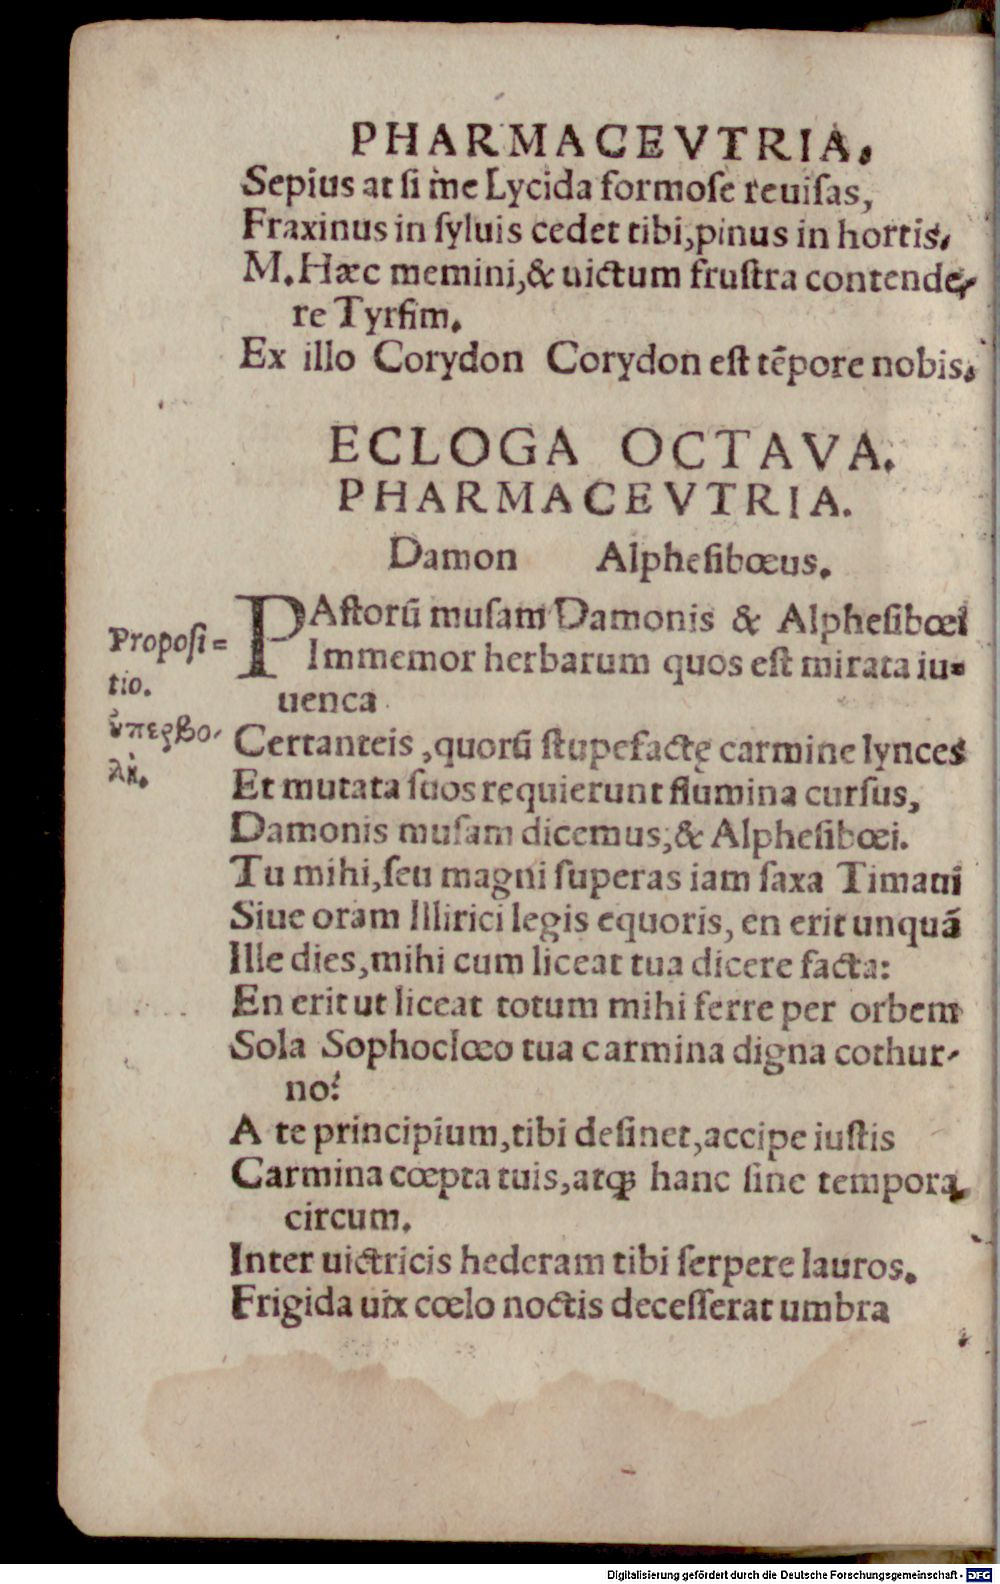 PHARMACEVTRIA.
Sepius at ſi me Lycida formoſe reuiſas,
Fraxinus in ſyluis cedet tibi,pinus in hortis.
M.Hæc memini,& uictum fruſtra contende-
re Tyrſim.
Ex illo Corydon Corydon eſt tēpore nobis.
ECLOGA OCTAVA.
PHARMACEVTRIA.
Damon Alpheſibœus.
PAſtorū muſam Damonis & Alpheſibœi
Propoſi=
tio.
Immemor herbarum quos eſt mirata iu-
uenca
ὑπερβο-
λή.
Certanteis ,quorū ſtupefactę carmine lynces
Et mutata ſuos requierunt flumina curſus,
Damonis muſam dicemus,& Alpheſibœi.
Tu mihi,ſeu magni ſuperas iam ſaxa Timaui
Siue oram Illirici legis equoris, en erit unquā
Ille dies,mihi cum liceat tua dicere facta:
En erit ut liceat totum mihi ferre per orbem
Sola Sophoclœo tua carmina digna cothur-
no?
A te principium,tibi deſinet,accipe iuſtis
Carmina cœpta tuis,atq; hanc ſine tempora
circum.
Inter uictricis hederam tibi ſerpere lauros.
Frigida uix cœlo noctis deceſſerat umbra
Digitalisierung gefördert durch die Deutsche Forschungsgemeinschaft - DFG